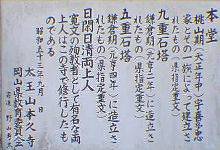 本堂
桃山期(天正年中)宇喜多忠
家とその一族によって建立さ
れたもの(県指定重文)
九重石塔
鎌倉期(元享
れたもの(県指定重文)
五重石塔
鎌倉期(元享四年)に建立さ
れたもの(県指定重文)
日閑日清両上人
寛文の殉教者として有名な両
上人はこの寺で修行したも
のである
昭和五十三年 月 日
太王山本久寺
岡山県教育委員会